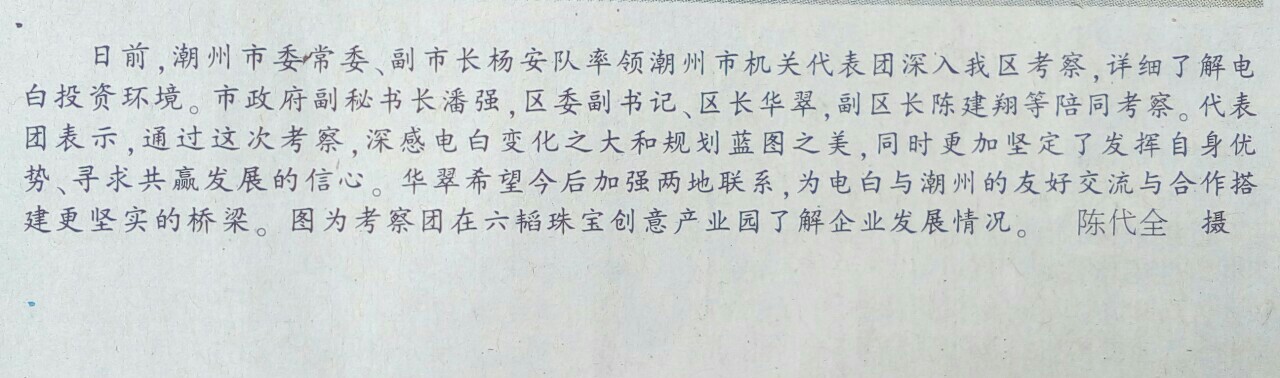 日前,潮州市委常委、副市长杨安队率领潮州市机关代表团深入我区考察,详细了解电
白投资环境。市政府副秘书长潘强,区委副书记、区长华翠,副区长陈建翔等陪同考察。代表
团表示,通过这次考察,深感电白变化之大和规划蓝图之美,同时更加坚定了发挥自身优
势、寻求共赢发展的信心。华翠希望今后加强两地联系,为电白与潮州的友好交流与合作搭
建更坚实的桥梁。图为考察团在六韬珠宝创意产业园了解企业发展情况。 陈代全 摄